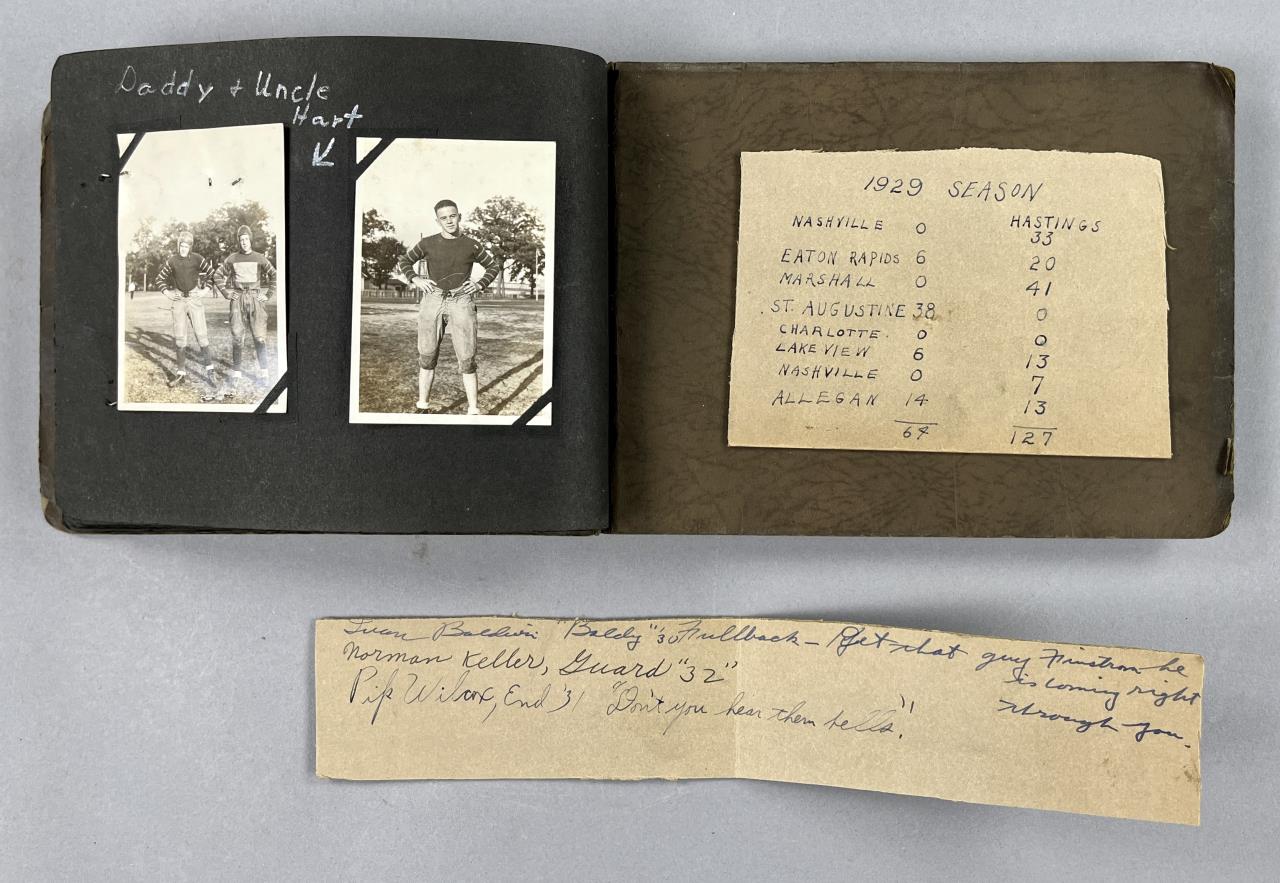 Daddy + Uncle
Hart
1929 SEASON
NASHVILLE 0 HASTINGS
33
EATON RAPIDS 6 20
MARSHALL 0 41
ST. AUGUSTINE 38 0
CHARLOTTE. 0 0
LAKEVIEW 6 13
NASHVILLE 0 7
ALLEGAN 14 13
64 127
Ivan Baldwin "Baldy" '30 Fullback - Get that guy Finstrom he
is coming right
through you.
Norman Keller, Guard "32"
Pip Wilcox, End '31 "Don't you hear them bells."!